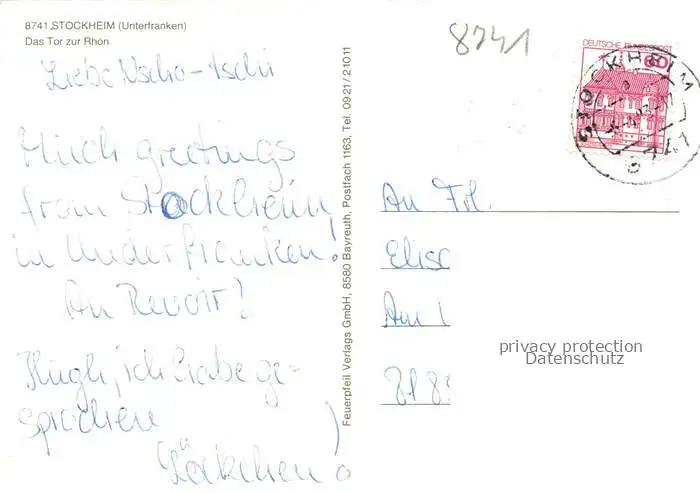 8741 STOCKHEIM (Unterfranken)
Das Tor zur Rhön
8741
DEUTSCHE BUNDESPOST
60
STOCKHEIM
8741
Liebe Nscho-tschi
Much greetings
from Stockheim
in Underfranken!
Au Revoir!
Hugh, ich habe ge-
sprochen
Löckchen
Feuerpfeil Verlags GmbH, 8580 Bayreuth, Postfach 1163, Tel. 0921/21011
An Frl.
Elisa
Am
privacy protection
Datenschutz